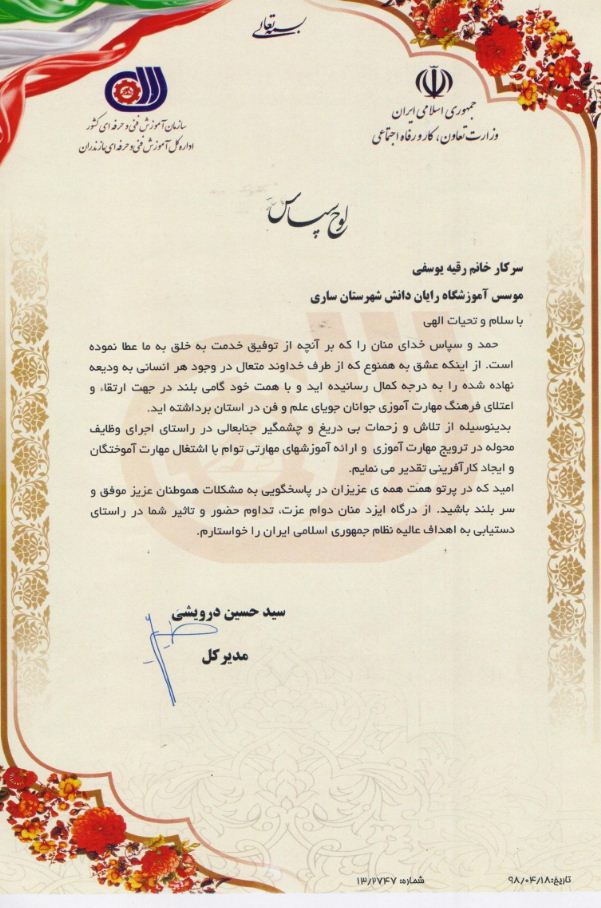 بسمه تعالی
جمهوری اسلامی ایران
وزارت تعاون، کار و رفاه اجتماعی
سازمان آموزش فنی و حرفه ای کشور
اداره کل آموزش فنی و حرفه ای مازندران
لوح سپاس
سرکار خانم رقیه یوسفی
موسس آموزشگاه رایان دانش شهرستان ساری
با سلام و تحیات الهی
حمد و سپاس خدای منان را که بر آنچه از توفیق خدمت به خلق به ما عطا نموده
است. از اینکه عشق به همنوع که از طرف خداوند متعال در وجود هر انسانی به ودیعه
نهاده شده را به درجه کمال رسانیده اید و با همت خود گامی بلند در جهت ارتقاء و
اعتلای فرهنگ مهارت آموزی جوانان جویای علم و فن در استان برداشته اید.
بدینوسیله از تلاش و زحمات بی دریغ و چشمگیر جنابعالی در راستای اجرای وظایف
محوله در ترویج مهارت آموزی و ارائه آموزشهای مهارتی توام با اشتغال مهارت آموختگان
و ایجاد کارآفرینی تقدیر می نمایم.
امید که در پرتو همت همه ی عزیزان در پاسخگویی به مشکلات هموطنان عزیز موفق و
سر بلند باشید. از درگاه ایزد منان دوام عزت، تداوم حضور و تاثیر شما در راستای
دستیابی به اهداف عالیه نظام جمهوری اسلامی ایران را خواستارم.
سید حسین درویشی
مدیر کل
تاریخ: ۹۸/۰۴/۱۸
شماره: ۱۳/۲۷۴۷